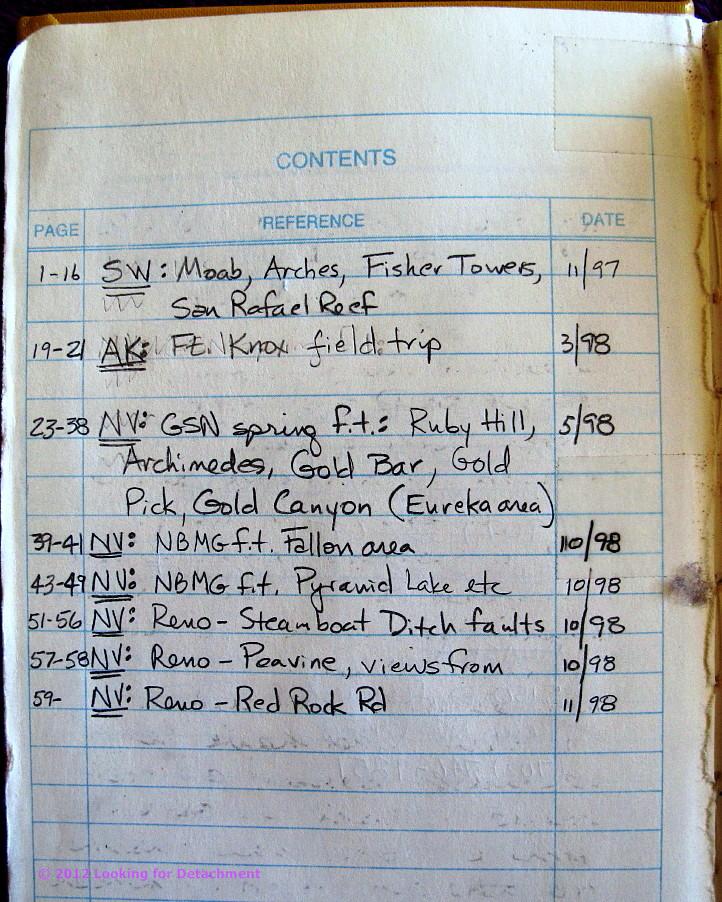 CONTENTS
PAGE REFERENCE DATE
1-16 SW: Moab, Arches, Fisher Towers, 11/97
San Rafael Reef
19-21 AK: Ft. Knox field trip 3/98
23-38 NV: GSN spring f.t.: Ruby Hill, 5/98
Archimedes, Gold Bar, Gold
Pick, Gold Canyon (Eureka area)
39-41 NV: NBMG f.t. Fallon area 10/98
43-49 NV: NBMG f.t. Pyramid Lake etc 10/98
51-56 NV: Reno - Steamboat Ditch faults 10/98
57-58 NV: Reno - Peavine, views from 10/98
59- NV: Reno - Red Rock Rd 11/98
© 2012 Looking for Detachment